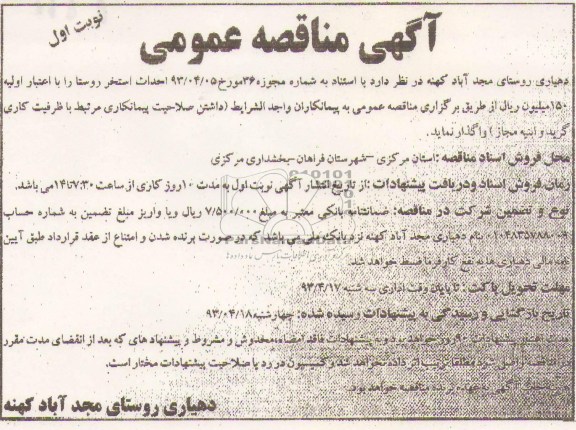 آگهی مناقصه عمومی
نوبت اول
دهیاری روستای مجد آباد کهنه در نظر دارد با استناد به شماره مجوزه ۳۶مورخ ۹۳/۰۴/۰۵ احداث استخر روستا را با اعتبار اولیه
۱۵۰میلیون ریال از طریق برگزاری مناقصه عمومی به پیمانکاران واجد الشرایط (داشتن صلاحیت پیمانکاری مرتبط با ظرفیت کاری
گرید و ابنیه مجاز ) واگذار نماید.
محل فروش اسناد مناقصه :استان مرکزی –شهرستان فراهان –بخشداری مرکزی
زمان فروش اسناد ودریافت پیشنهادات :از تاریخ انتشار آگهی نوبت اول به مدت ۱۰روز کاری از ساعت ۷:۳۰تا۱۴می باشد.
نوع و تضمین شرکت در مناقصه: ضمانتنامه بانکی معتبر به مبلغ ۷/۵۰۰/۰۰۰ ریال ویا واریز مبلغ تضمین به شماره حساب
بنام دهیاری مجد آباد کهنه نزد بانک ملی می باشد که در صورت برنده شدن و امتناع از عقد قرارداد طبق آیین
نامه مالی دهیاری ها به نفع کارفرما ضبط خواهد شد.
مهلت تحویل پاکت : تا پایان وقت اداری سه شنبه ۹۳/۴/۱۷
تاریخ بازگشایی و رسیدگی به پیشنهادات رسیده شده: چهارشنبه ۹۳/۰۴/۱۸
مدت اعتبار پیشنهادات ۹۰ روز خواهد بود و به پیشنهادات فاقد امضاء،مخدوش و مشروط و پیشنهاد های که بعد از انقضای مدت مقرر
در مناقصه واصل شود مطلقا ترتیب اثر داده نخواهد شد و کمیسیون در رد یا صلاحیت پیشنهادات مختار است.
آگهی به عهده برنده مناقصه خواهد بود.
دهیاری روستای مجد آباد کهنه